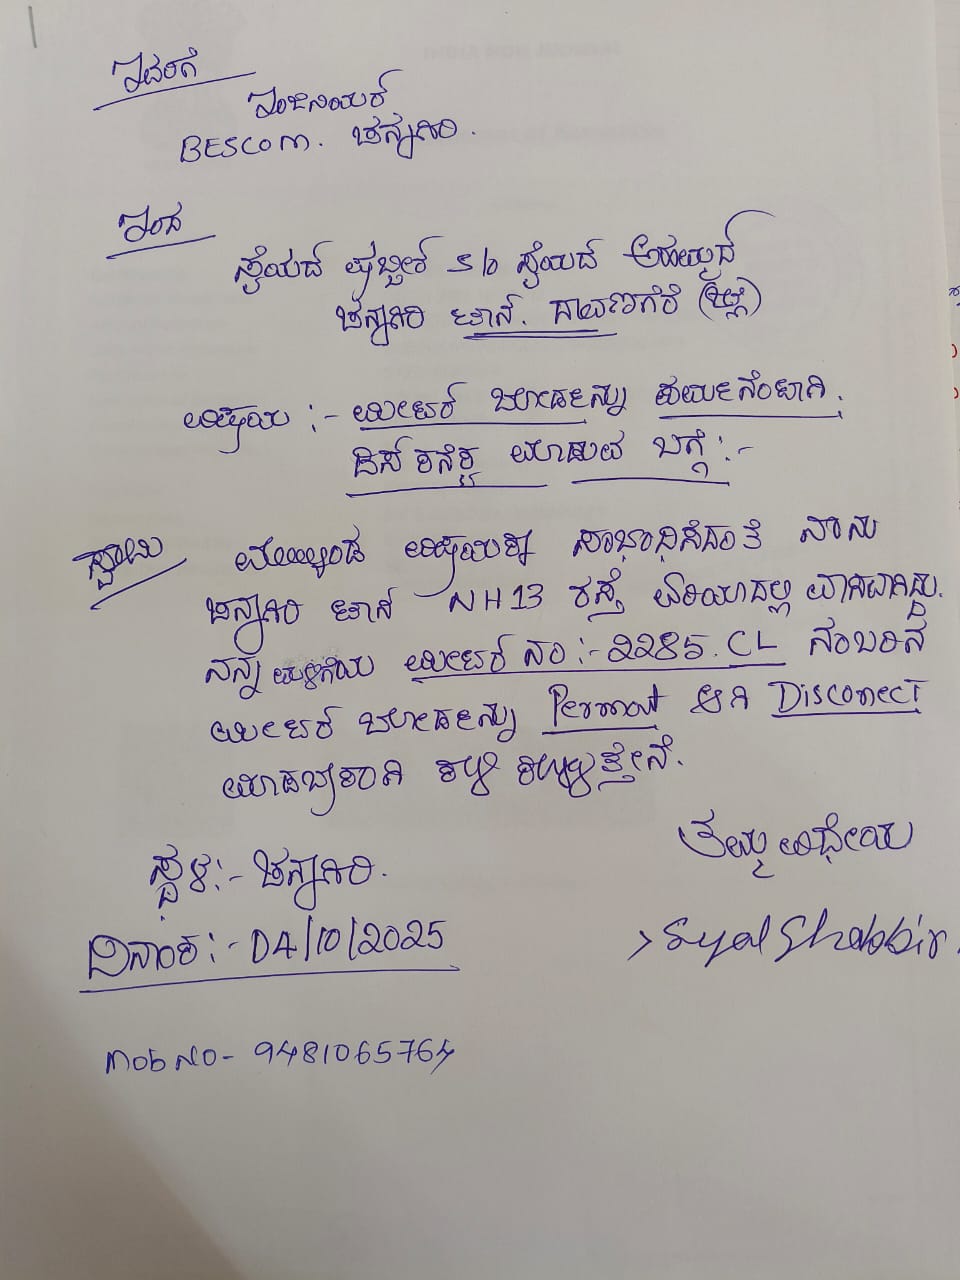 ಇವರಿಗೆ
ಇಂಜಿನಿಯರ್
BESCOM. ಚನ್ನಗಿರಿ.
ಇಂದ
ಸೈಯದ್ ಷಬ್ಬೀರ್ S/o ಸೈಯದ್ ಅಹಮ್ಮದ್
ಚನ್ನಗಿರಿ ಟಾನ್. ದಾವಣಗೆರೆ (ಜಿಲ್ಲೆ)
ವಿಷಯ :- ಮೀಟರ್ ಬೋರ್ಡನ್ನು ಪರ್ಮನೆಂಟಾಗಿ.
ಡಿಸ್ ಕನೆಕ್ಟ ಮಾಡುವ ಬಗ್ಗೆ :-
ಸ್ವಾಮಿ ಮೇಲ್ಕಂಡ ವಿಷಯಕ್ಕೆ ಸಂಭಂಧಿಸಿದಂತೆ ನಾನು
ಚನ್ನಗಿರಿ ಟಾನ್ NH13 ರಸ್ತೆ ಏರಿಯಾದಲ್ಲಿ ವಾಸಿವಾಗಿದ್ದು.
ನನ್ನ ಮಳಿಗೆಯ ಮೀಟರ್ ನಂ :- 2285. CL ನಂಬರಿನ
ಮೀಟರ್ ಬೋರ್ಡನ್ನು Permnat ಆಗಿ Disconect
ಮಾಡಬೇಕಾಗಿ ಕೇಳಿ ಕೊಳ್ಳುತ್ತೇನೆ.
ತಮ್ಮ ವಿಧೇಯ
ಸ್ಥಳ :- ಚನ್ನಗಿರಿ.
Syed Shabbir
ದಿನಾಂಕ :- 04/10/2025
Mob NO - 9481065764